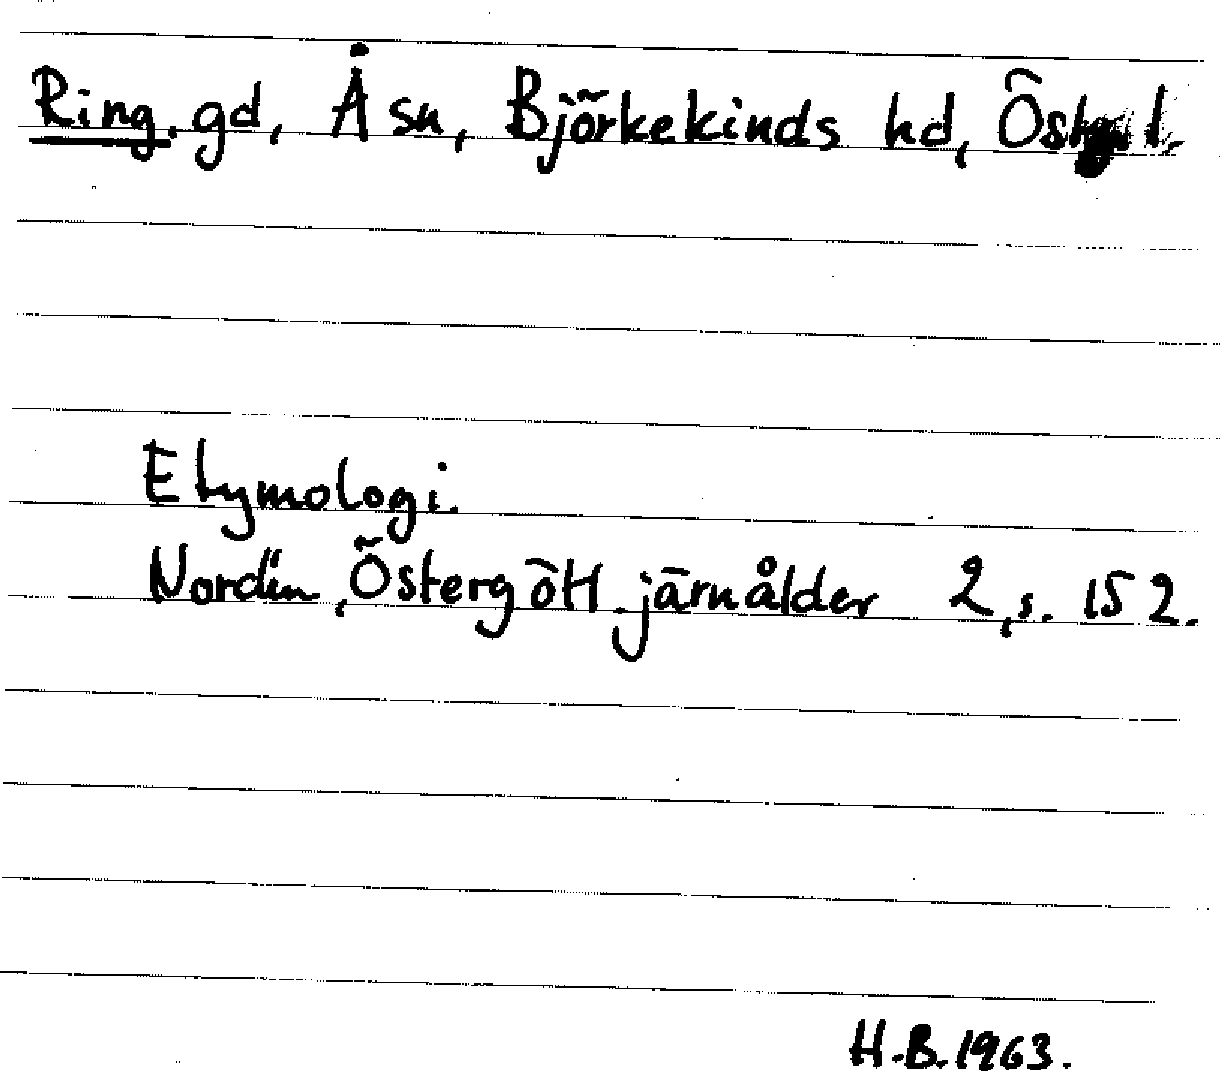 Ring. gd, Å sn, Björkekinds hd,
Etymologi.
Nordén, Östergötl. järnålder 2, s. 152.
H.B. 1963.